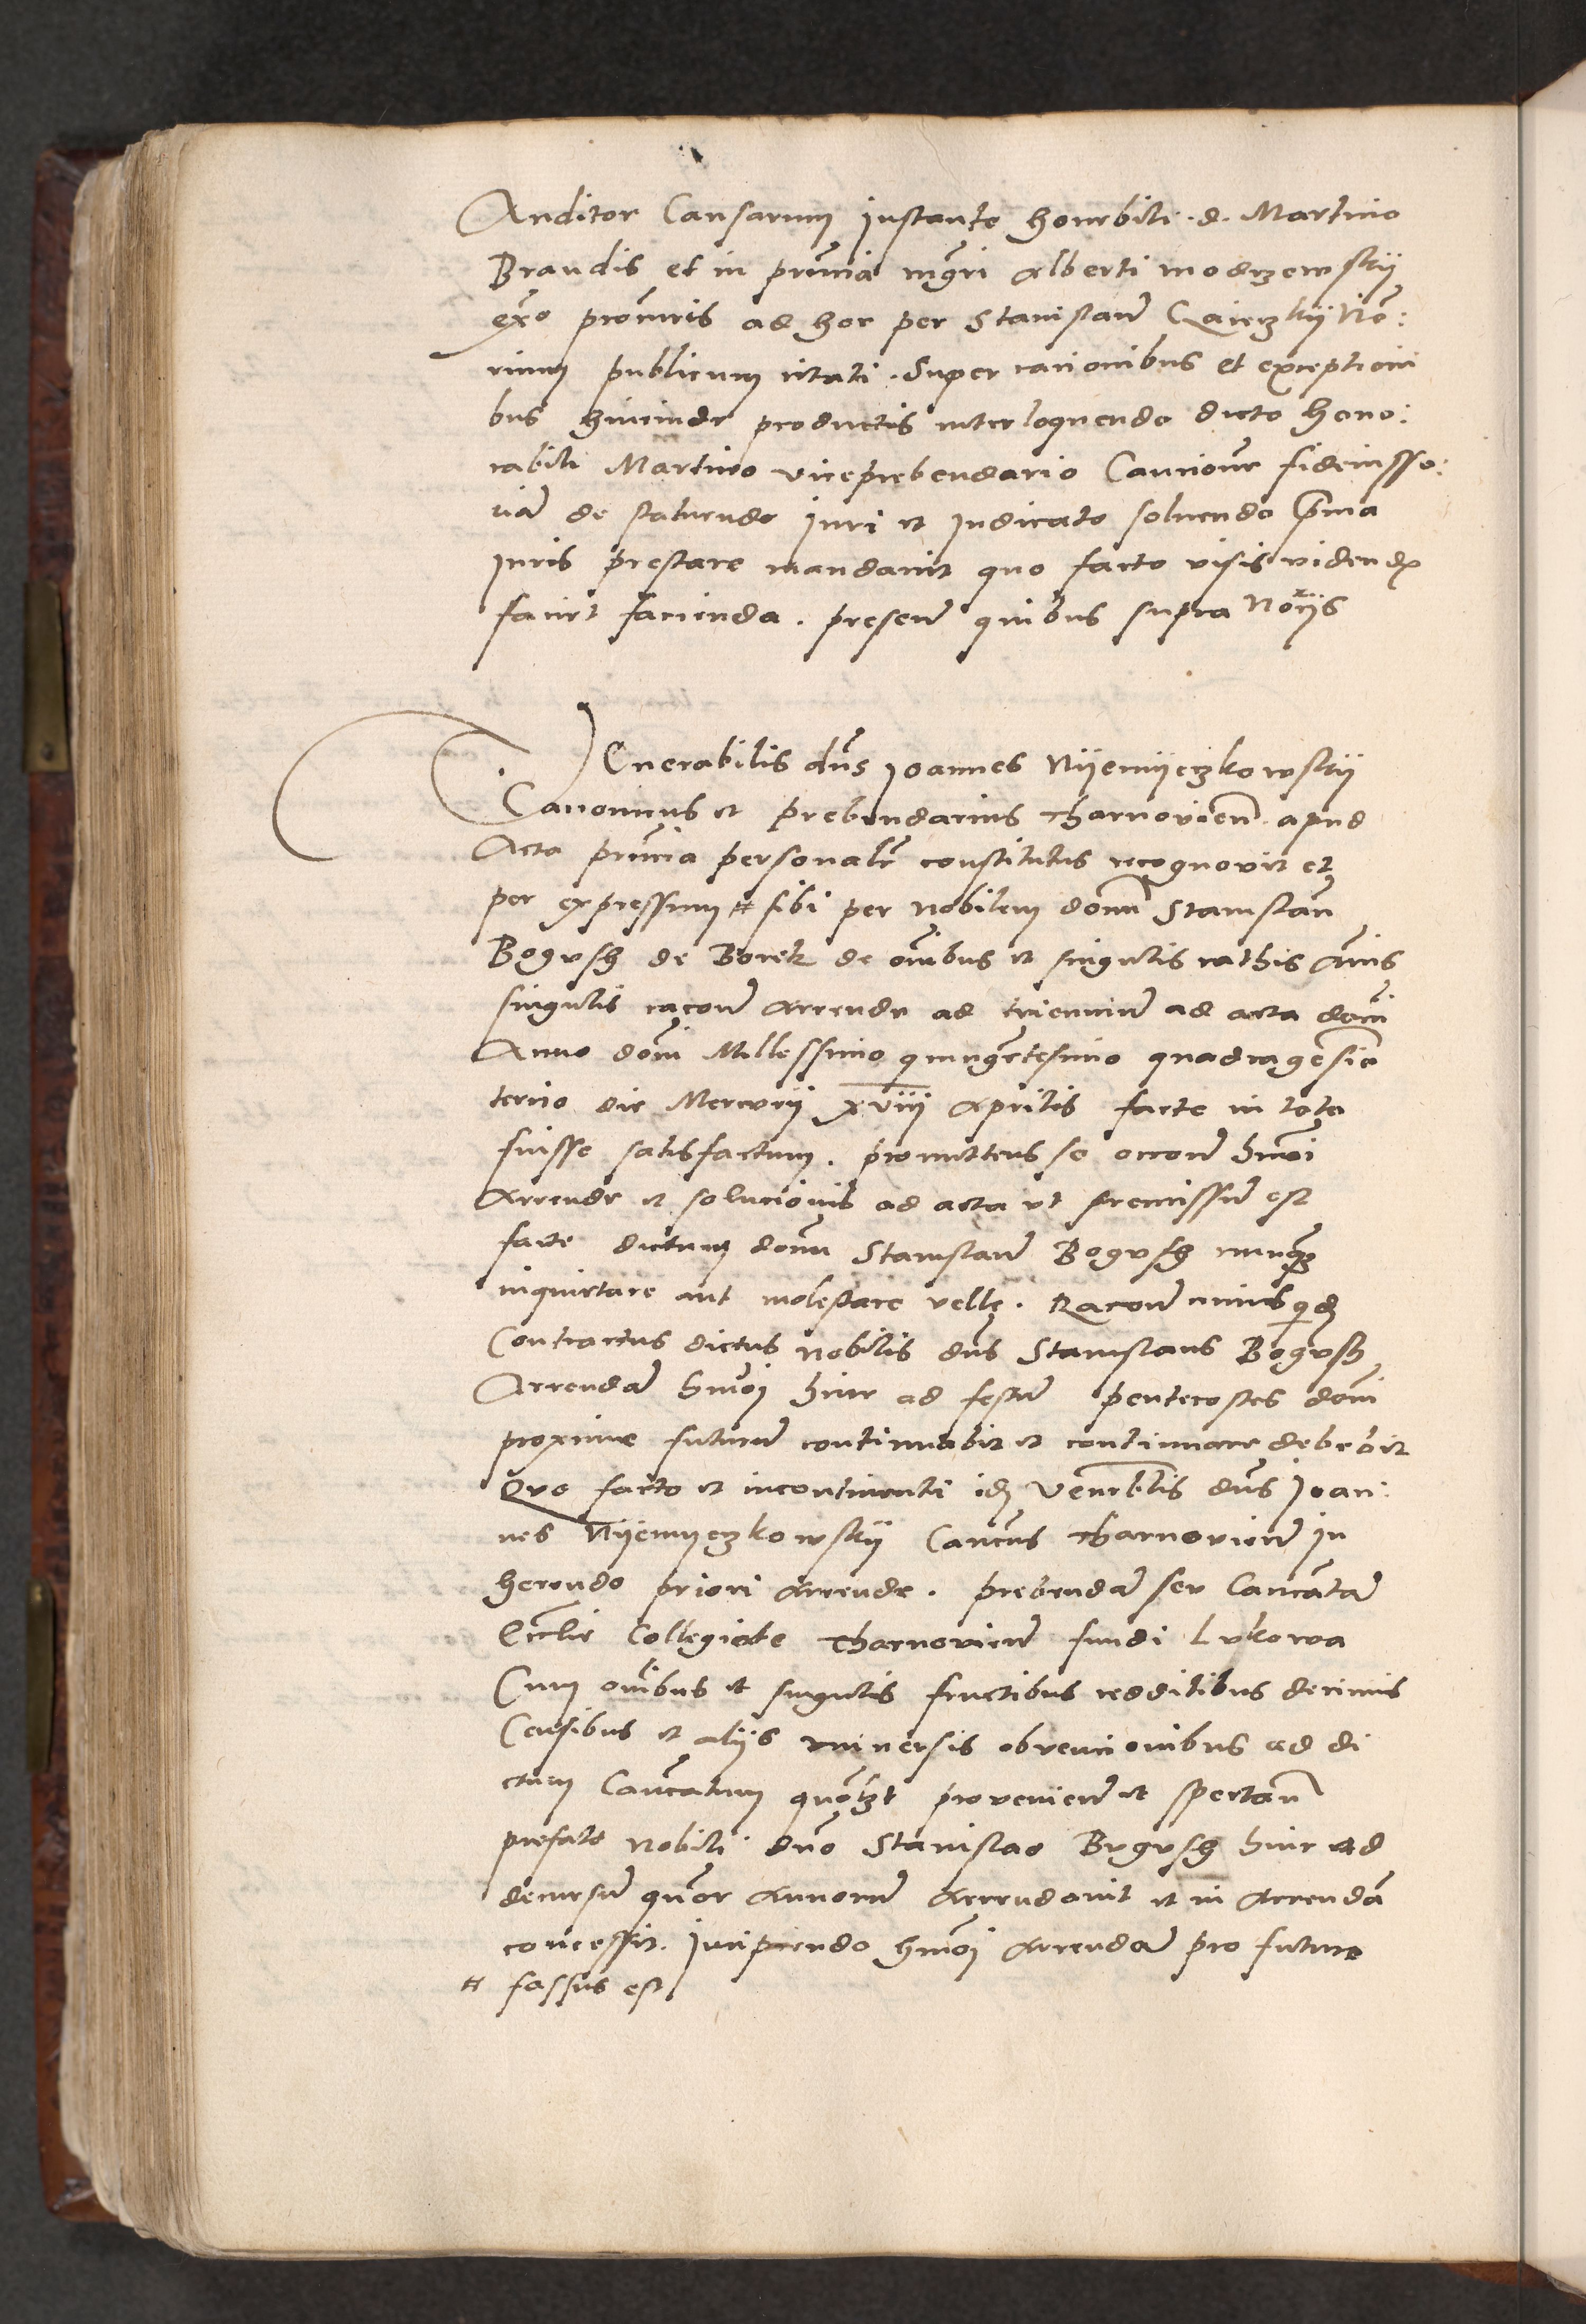 Auditor Causarum Instante honrbili. d. Martino
Brandis et in pn̄cia mgr̄i Alberti modrzewskij
exo procuris ad hoc per Stanislaū No:
rium publicum citati. Super cacionibus et exceptioni
bus hincinde productis interloquendo dicto hono:
rabili Martino viceprebendario Cautionē fideiusso:
riā de statuendo Iuri et Iudicato soluendo
Iuris prestare mandavit quo facto visis videndis
faciet facienda. presen̄ quibus supra Norijs

VEnerabilis dn̄s Joannes Nijemijeczkowskij
Canonicus et prebendarius Tharnovien̄ apud
Acta pn̄cia personalr̄ constitutus recognovit et
per expressum # sibi per Nobilem don̄m Stanislaū
Bogusch de Borek de om̄ibus et singulis rathis Annis
singulis racōnē Arrende ad trienniū ad acta don̄i
Anno don̄i Millessimo quingentesimo quadragesimo
tercio die Mercurij xviij Aprilis facte in toto
fuisse satisfactum. promittens se occōnē hmōi
Arrende et solucionis ad acta ut premissū est
facte dictum don̄m Stanislaū Bogusch nunqz
inquietare aut molestare velle. Racōnē
Contractus dictus Nobilis dn̄s Stanislaus Bogusch
Arrendā hmōi hinc ad festū pentecostes don̄i
proxime futurū continuabit et continuare debebit
Quo facto et incontinenti idē Venerblis dn̄s Joan:
nes Nijemyeczkowskij Canc̄us Tharnovien̄ in
herendo priori Arrende. prebendā seu Canc̄atū
Eccl̄ie Collegiate Tharnovien̄ fundi Lukowa
Cum om̄ibus et singulis fructibus redditibus decimis
Censibus et alijs universis obvencionibus ad di
ctum Canc̄atum quōlt provenien̄ et spectan̄
prefato Nobili dn̄o Stanislao Bogusch hinc ad
decursū quor Annorū Arrendavit et in Arrendā
concessit. Incipiendo hmōi Arrendā pro futuro
# fassus est